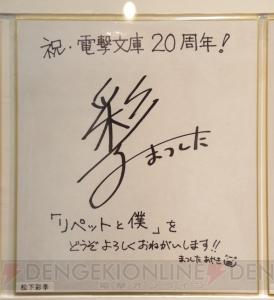 祝・電撃文庫20周年!
彩子
まつした
「リペットと僕」を
どうぞよろしくおねがいします!!
まつした あやき
松下彩季
©DENGEKIONLINE
電撃オンライン
DENGEKIO